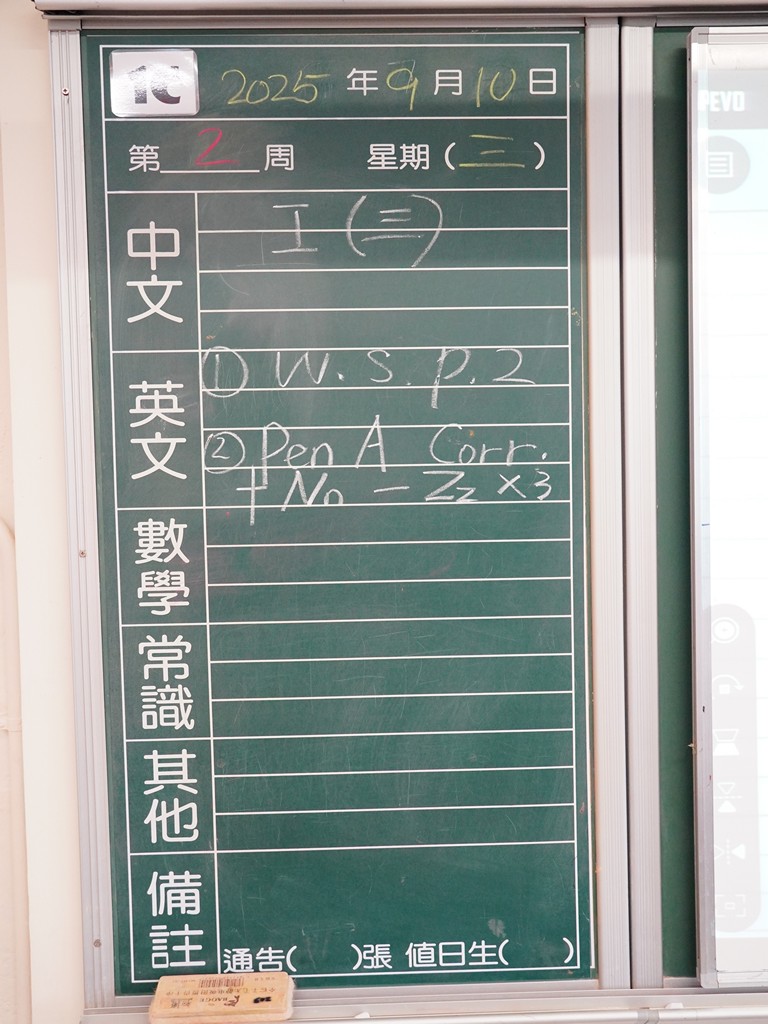 1C 2025 年 9 月 10 日
第 2 周 星期 ( 三 )
中文
工 (三)
英文
① W. S. P. 2
② Pen A Corr.
+ Nn - Zz × 3
數學
常識
其他
備註
通告( )張 值日生( )